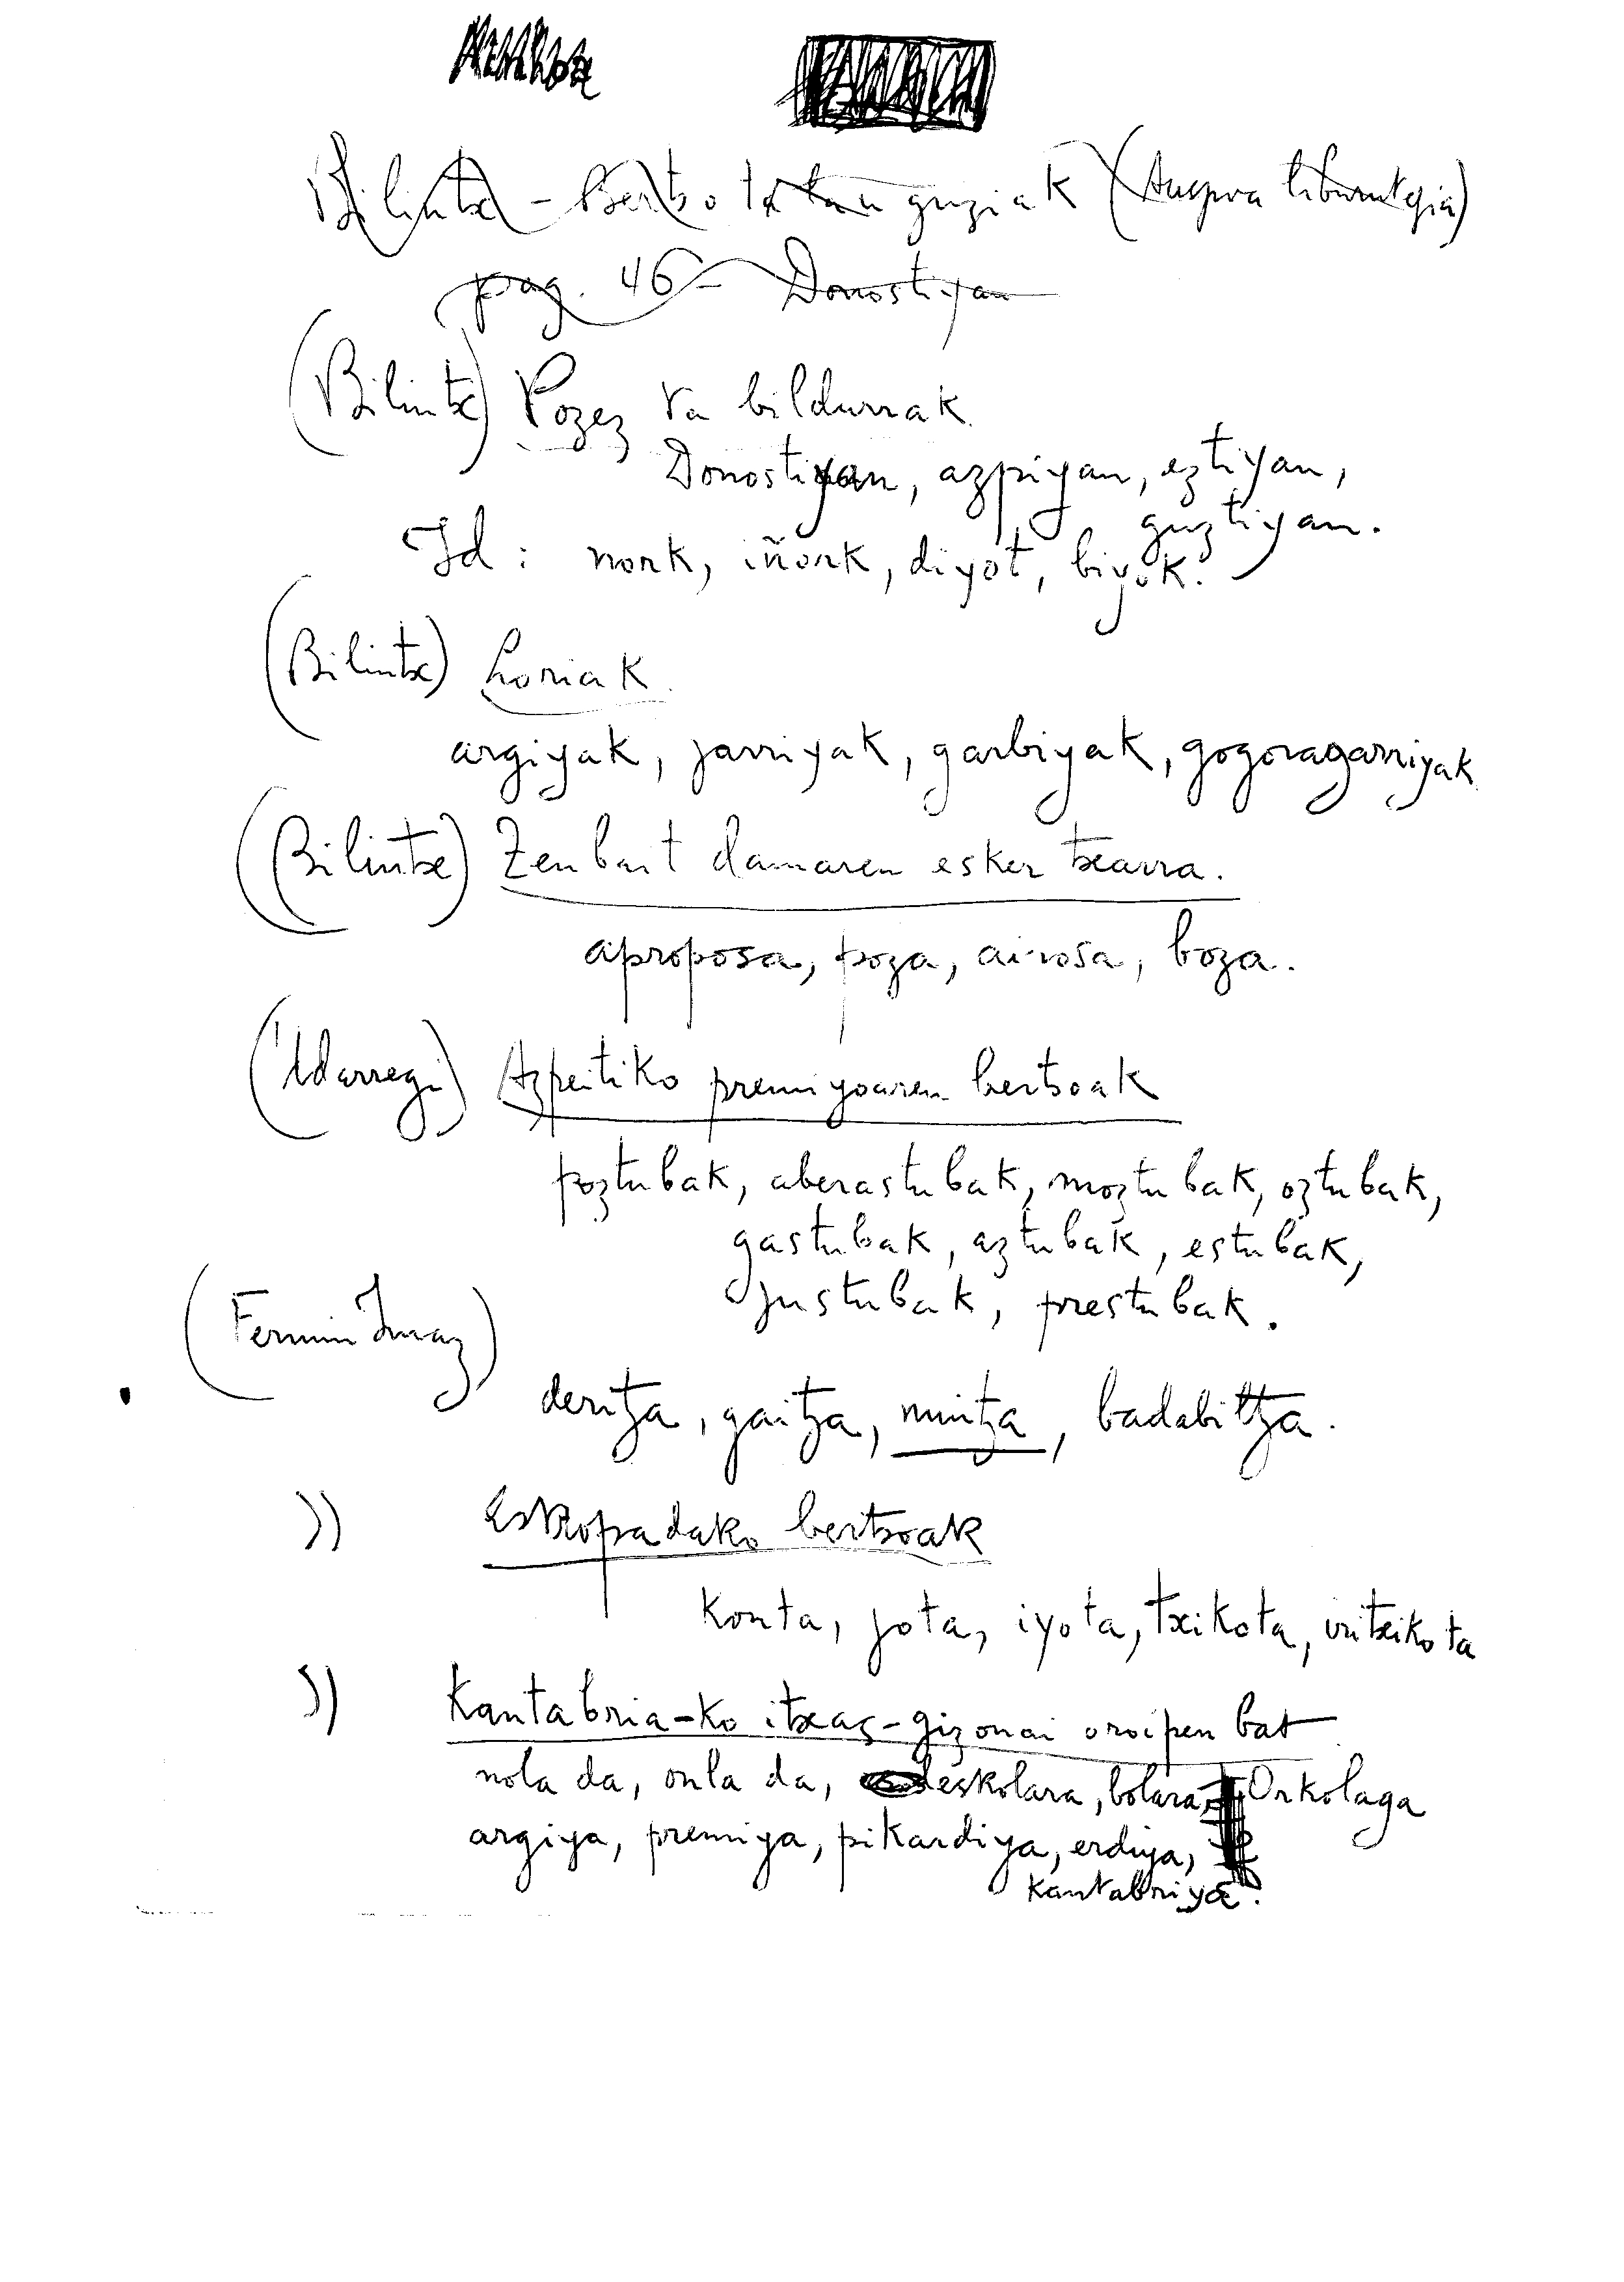 Bilintx - Bertso ta lan guziak (Auspoa liburutegia)
pag. 46 - Donostiyan
(Bilintx) Pozez ta bildurrak
Donostiyan, azpiyan, eztiyan,
guztiyan.
Id: nork, iñork, diyot, biyok.
(Bilintx) Loriak
argiyak, jarriyak, garbiyak, gogoragarriyak
(Bilintx) Zenbait damaren esker txarra.
aproposa, poza, airosa, boza.
(Udarregi) Azpeitiko premiyoaren bertsoak
poztubak, aberastubak, moztubak, oztubak,
gastubak, aztubak, estubak,
justubak, prestubak.
(Fermin Imaz)
deritza, gaitza, mintza, badabiltza.
)) Eskopadako bertsoak
Konta, jota, iyota, txikota, intxikota
)) Kantabria-ko itxas-gizonai oroipen bat
nola da, onla da, eskolara, bolara, Orkolaga
argiya, premiya, pikardiya, erdiya,
Kantabriya.